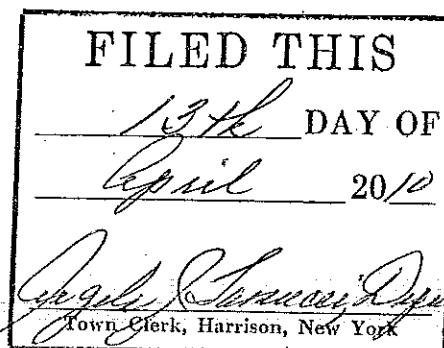 FILED THIS
13th DAY OF
April 2010
Town Clerk, Harrison, New York